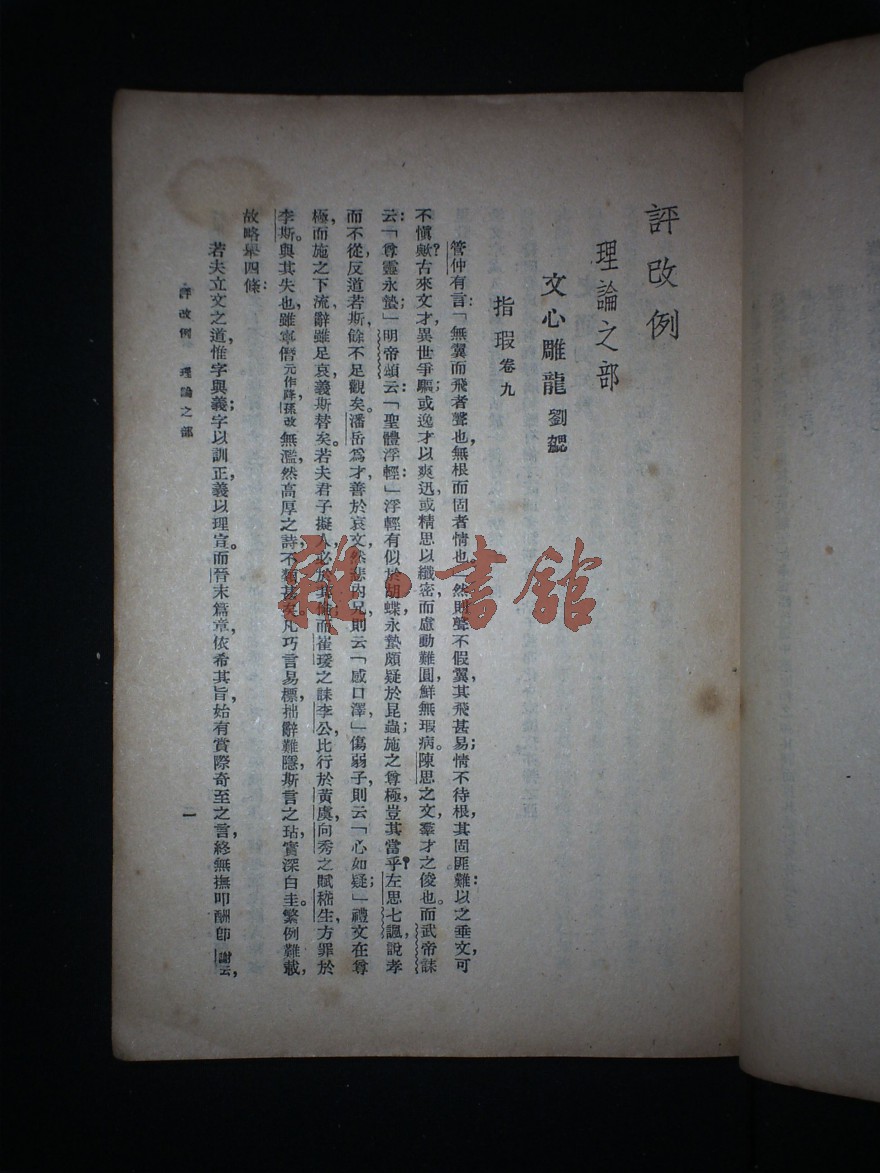 評改例
理論之部
文心雕龍 劉勰
指瑕 卷九
管仲有言：「無翼而飛者聲也，無根而固者情也。」然則聲不假翼，其飛甚易；情不待根，其固匪難：以之垂文，可
不慎歟？古來文才，異世爭驅；或逸才以爽迅，或精思以纖密，而慮動難圓，鮮無瑕病。陳思之文，羣才之俊也。而武帝誄
云：「尊靈永蟄；」明帝頌云：「聖體浮輕；」浮輕有似於胡蝶，永蟄頗疑於昆蟲；施之尊極，豈其當乎？左思七諷，說孝
而不從，反道若斯，餘不足觀矣。潘岳爲才，善於哀文，然悲內兄，則云「感口澤，」傷弱子，則云「心如疑；」禮文在尊
極，而施之下流，辭雖足哀，義斯替矣。若夫君子擬人必於其倫，而崔瑗之誄李公，比行於黃虞，向秀之賦嵇生，方罪於
李斯。與其失也，雖寧僭元作降，孫改無濫，然高厚之詩，不類甚矣。凡巧言易標，拙辭難隱，斯言之玷，實深白圭。繁例難載，
故略舉四條：
若夫立文之道，惟字與義；字以訓正，義以理宣。而晉末篇章，依希其旨，始有賞際奇至之言，終無撫叩酬卽謝云，
評改例 理論之部
一
雜·書館